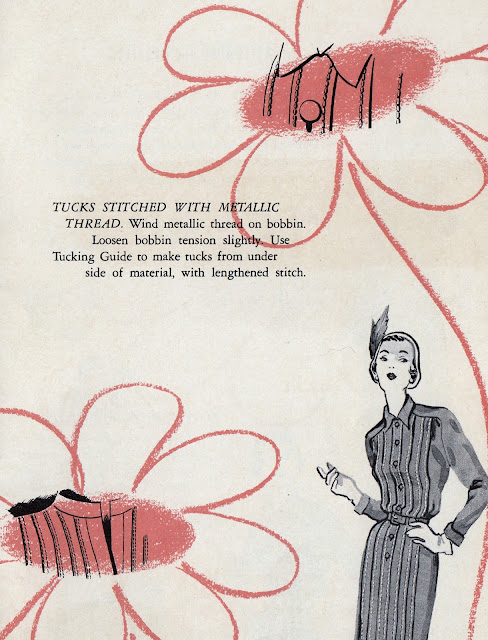 TUCKS STITCHED WITH METALLIC
THREAD. Wind metallic thread on bobbin.
Loosen bobbin tension slightly. Use
Tucking Guide to make tucks from under
side of material, with lengthened stitch.